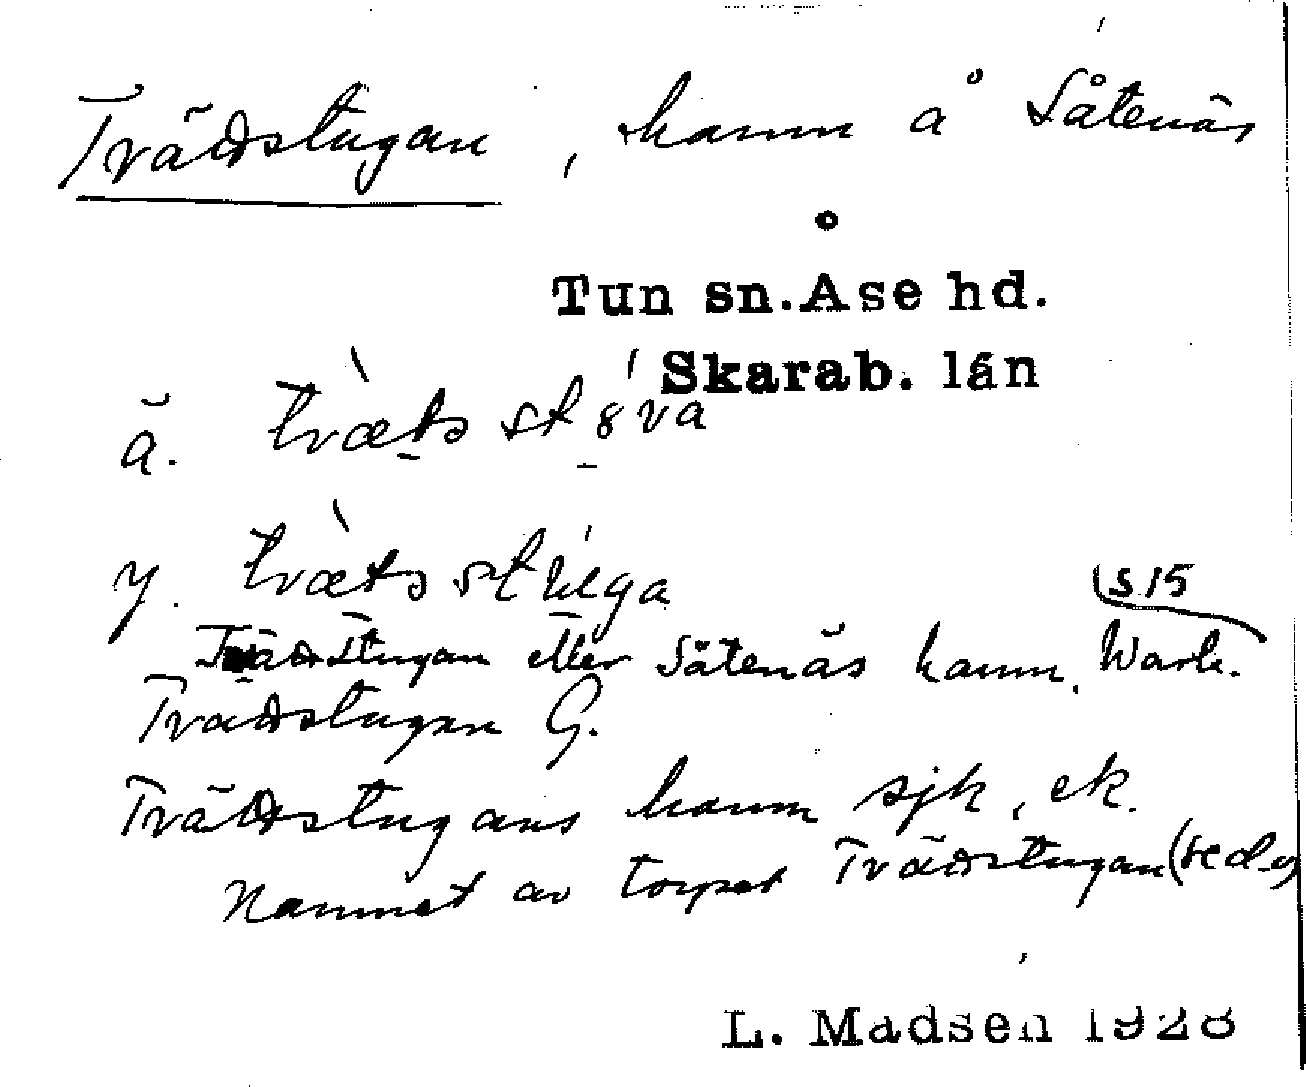 Trädstugan, hamn å Såtenäs
Tun sn. Åse hd.
Skarab. län
ä. trætsstöva
y. trætsstuga
s 15
Trädstugan eller Såtenäs hamn. Warh.
Trädstugan G.
Trädstugans hamn sjk, ek.
Namnet av torpet Trädstugan (se d.o)
L. Madsen 1928